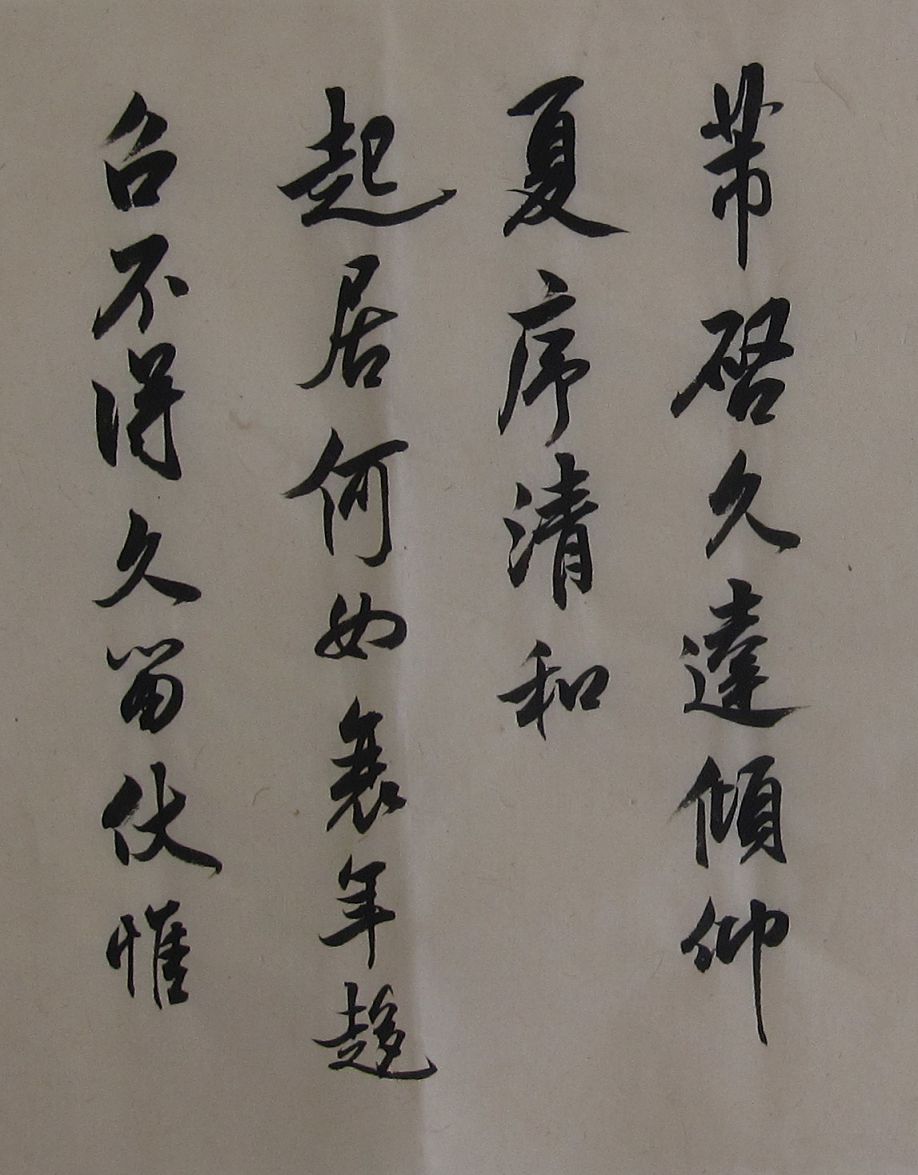 芾啓久違傾仰
夏序清和
起居何如衰年趍
召不得久留伏惟